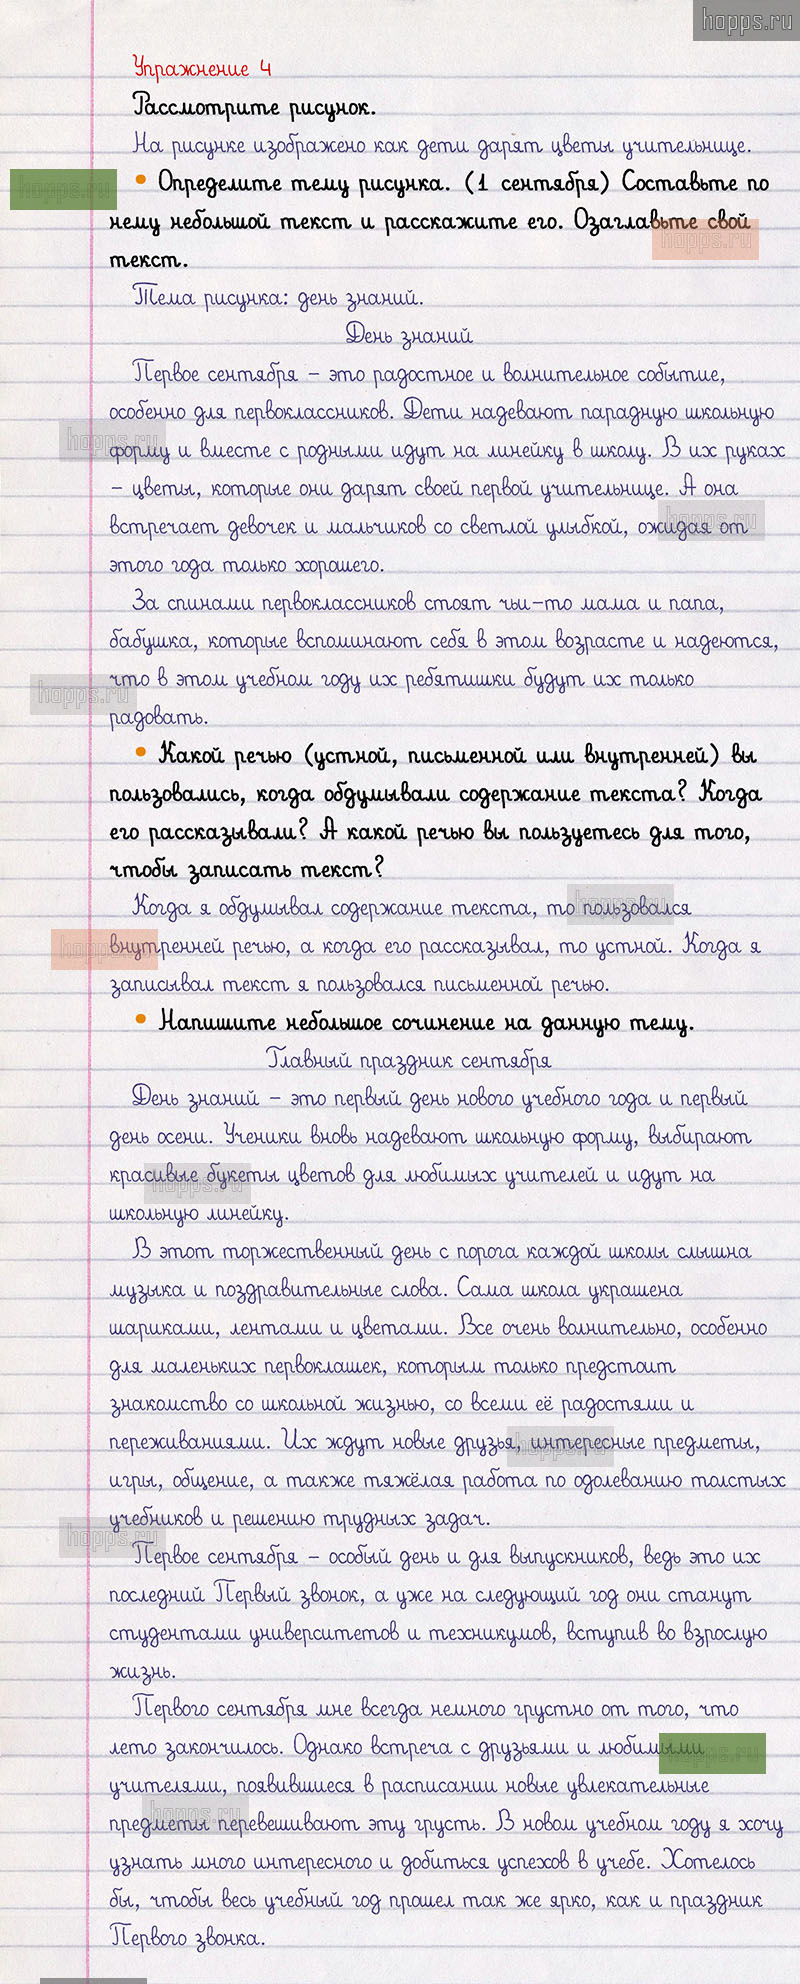 hopps.ru
Упражнение 4
Рассмотрите рисунок.
На рисунке изображено как дети дарят цветы учительнице.
• Определите тему рисунка. (1 сентября) Составьте по
нему небольшой текст и расскажите его. Озаглавьте свой
текст.
Тема рисунка: день знаний.
День знаний
Первое сентября – это радостное и волнительное событие,
особенно для первоклассников. Дети надевают парадную школьную
форму и вместе с родными идут на линейку в школу. В их руках
– цветы, которые они дарят своей первой учительнице. А она
встречает девочек и мальчиков со светлой улыбкой, ожидая от
этого года только хорошего.
За спинами первоклассников стоят чьи-то мама и папа,
бабушка, которые вспоминают себя в этом возрасте и надеются,
что в этом учебном году их ребятишки будут их только
радовать.
• Какой речью (устной, письменной или внутренней) вы
пользовались, когда обдумывали содержание текста? Когда
его рассказывали? А какой речью вы пользуетесь для того,
чтобы записать текст?
Когда я обдумывал содержание текста, то пользовался
внутренней речью, а когда его рассказывал, то устной. Когда я
записывал текст я пользовался письменной речью.
• Напишите небольшое сочинение на данную тему.
Главный праздник сентября
День знаний – это первый день нового учебного года и первый
день осени. Ученики вновь надевают школьную форму, выбирают
красивые букеты цветов для любимых учителей и идут на
школьную линейку.
В этот торжественный день с порога каждой школы слышна
музыка и поздравительные слова. Сама школа украшена
шариками, лентами и цветами. Все очень волнительно, особенно
для маленьких первоклашек, которым только предстоит
знакомство со школьной жизнью, со всеми её радостями и
переживаниями. Их ждут новые друзья, интересные предметы,
игры, общение, а также тяжёлая работа по одолеванию толстых
учебников и решению трудных задач.
Первое сентября – особый день и для выпускников, ведь это их
последний Первый звонок, а уже на следующий год они станут
студентами университетов и техникумов, вступив во взрослую
жизнь.
Первого сентября мне всегда немного грустно от того, что
лето закончилось. Однако встреча с друзьями и любимыми
учителями, появившиеся в расписании новые увлекательные
предметы перевешивают эту грусть. В новом учебном году я хочу
узнать много интересного и добиться успехов в учебе. Хотелось
бы, чтобы весь учебный год прошел так же ярко, как и праздник
Первого звонка.